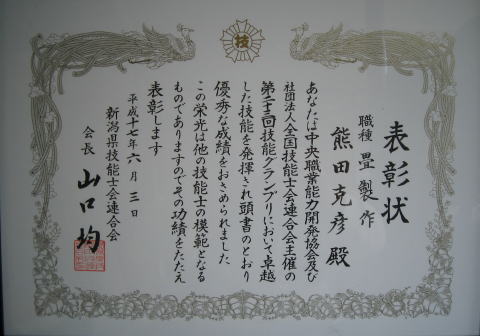 技
表彰状
職種 畳製作
熊田克彦殿
あなたは中央職業能力開発協会及び
社団法人全国技能士会連合会主催の
第二十三回技能グランプリにおいて卓越
した技能を発揮され頭書のとおり
優秀な成績をおさめられました
この栄光は他の技能士の模範となる
ものでありますのでその功績をたたえ
表彰します
平成十七年六月三日
新潟県技能士会連合会
会長 山口均